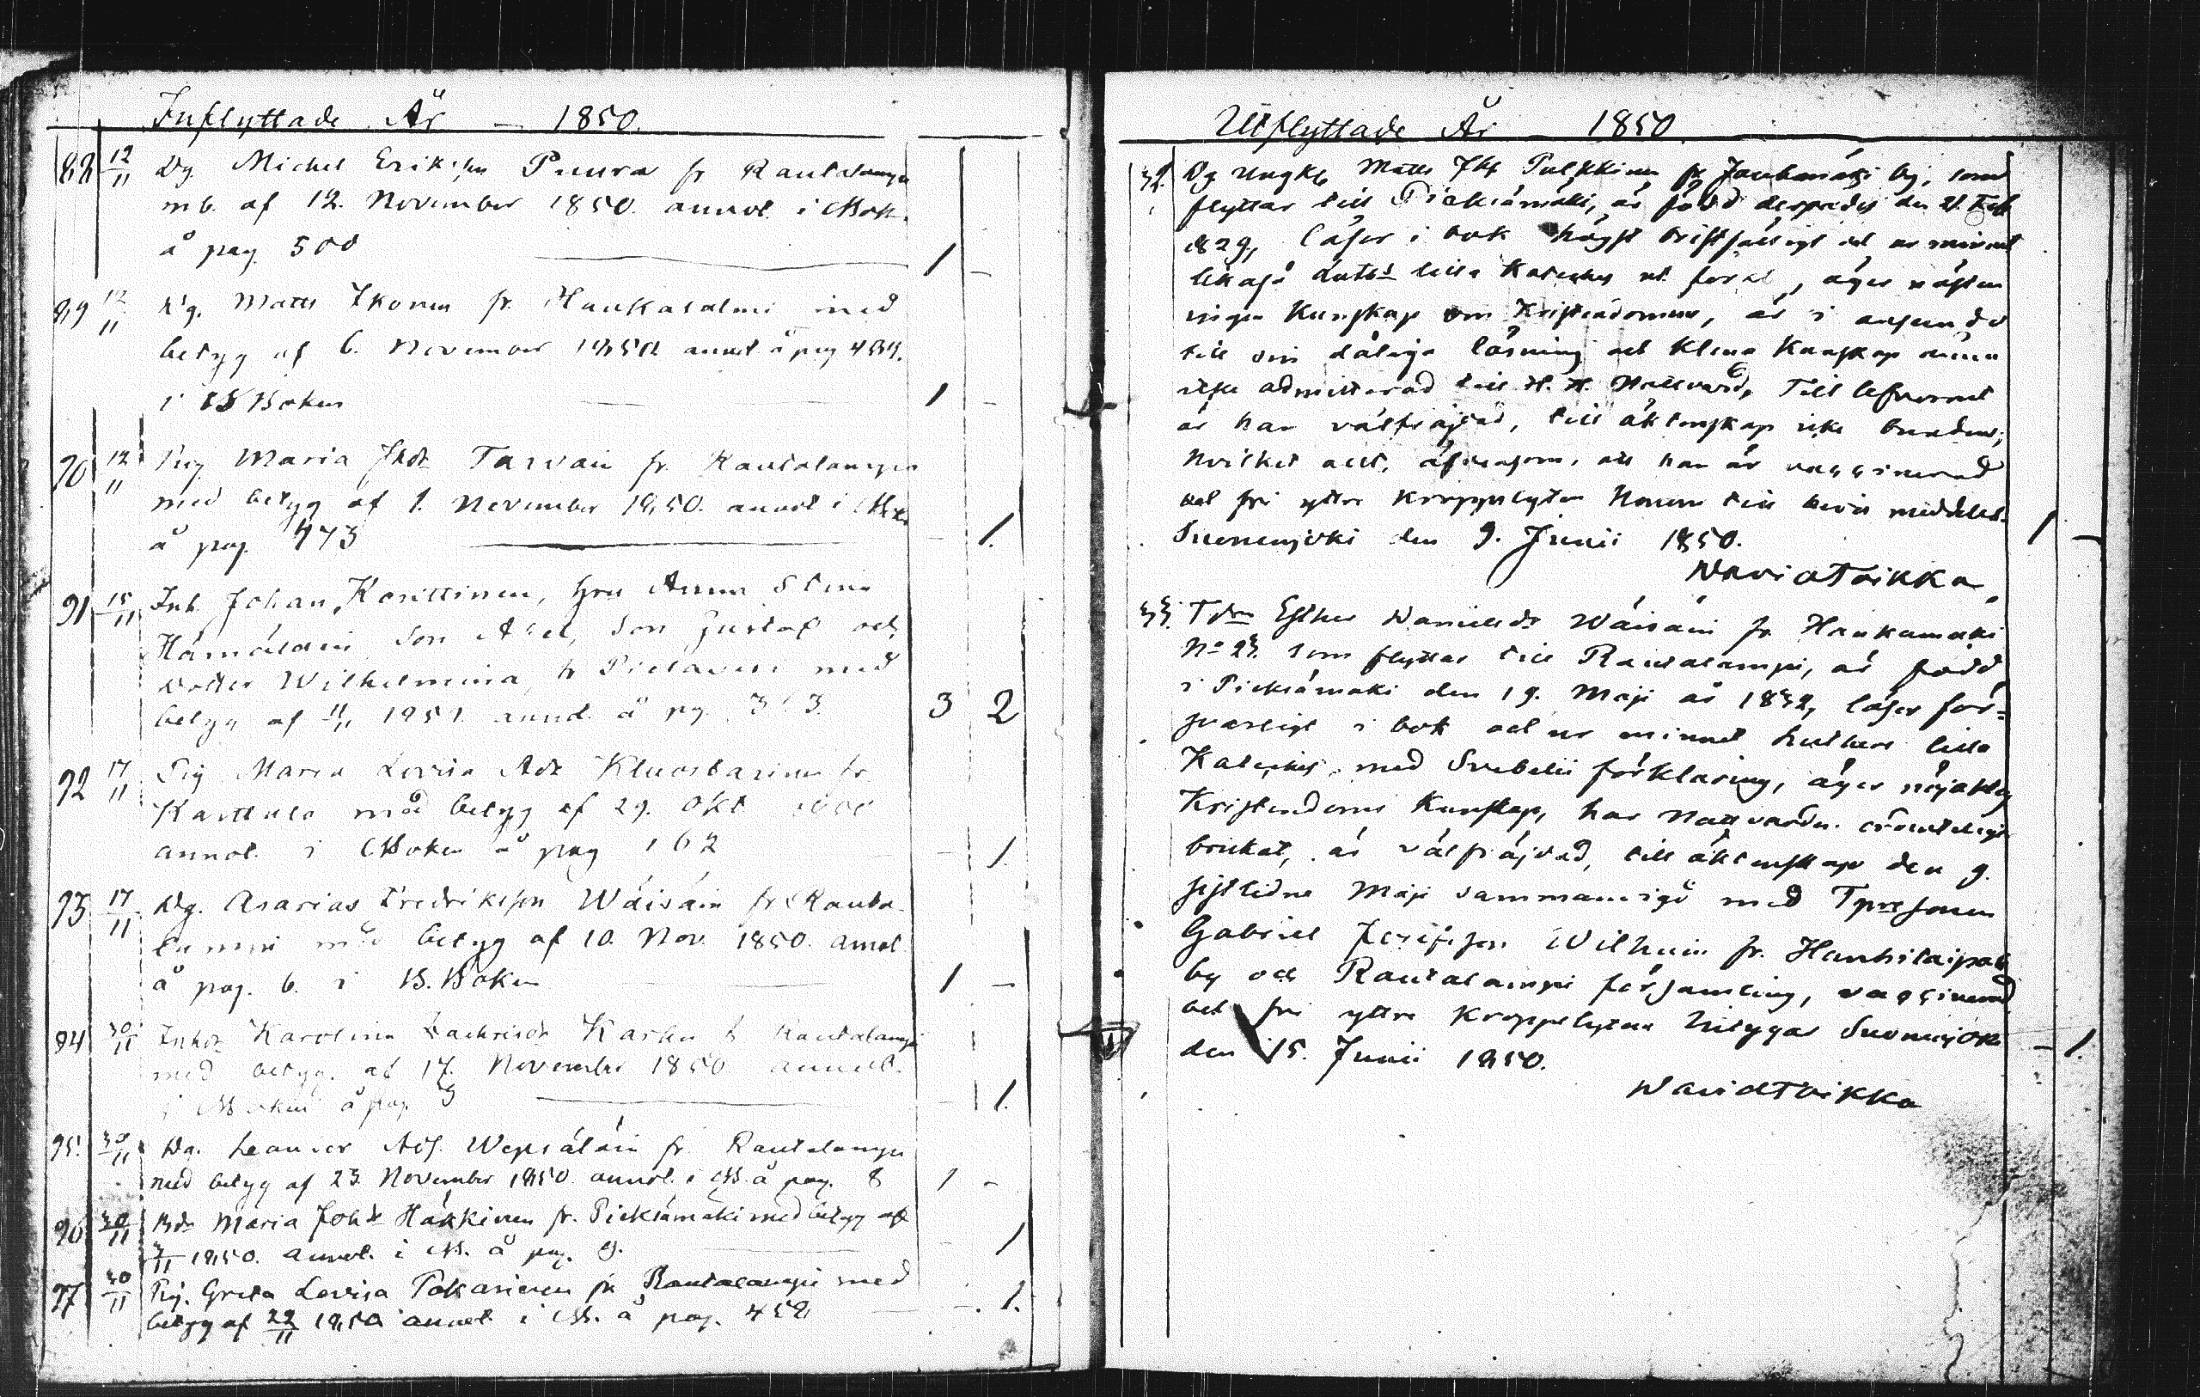 Inflyttade År — 1850.
88 12/11 Dg. Michel Eriksson Puura fr Rautalampi
m b. af 12. November 1850. annot. i Bok.
å pag. 500 1 -
89 12/11 Dg. Matts Ikonen fr. Hankasalmi med
betyg af 6. November 1850 annot å pag 484.
i B Boken 1 -
90 12/11 Pig Maria Jhdr Tarvain fr. Rautalampi
med betyg af 1. November 1850. annot i
å pag. 473 - 1.
91 15/11 Inh. Johan Korittinen, hru Anna Stina
Hämäläin Son Abel, Son Gustaf och
Dotter Wilhelmina, fr Pielavesi med
betyg af annot. å pag. 3 2
92 17/11 Pig Maria Lovisa Adr fr
Karttula med betyg af 29. Okt 1850
annot. i Boken å pag 162 - 1.
93 17/11 Dg. Asarias Fredriksson Wäisäin fr Rauta-
lampi med betyg af 10. Nov. 1850. annot
å pag. 6. i B. Boken 1 -
94 30/11 Inhdr Karolina Zachrisdr Karhu fr Rautalampi
med betyg. af 17. November 1850. annot.
i Boken å pag. 9 - 1.
95. 30/11 Dg. Leander Adf. Wepsäläin fr. Rautalampi
med betyg af 23. November 1850. annot. i B. å pag. 8 1 -
96 30/11 Maria Johdr Häkkinen fr. Pieksämäki med betyg af
1850. annot. i B. å pag. 9. - 1
97 30/11 Pig. Greta Lovisa Tokarinen fr Rautalampi med
betyg af 22/11 1850 annot i B. å pag. 452 - 1.
Utflyttade År — 1850
32. Dg Ungk. Matts Jhf Pulkkinen fr. Jauhomäki by, som
flyttar till Pieksämäki, är född derstädes den 21. Feb
1829, läser i bok högst bristfälligt och ur minnet
likaså Luth: lilla Kateches ut. förkl, äger nästan
ingen Kunskap om Kristendomen, är i anseende
till sin dåliga läsning och klena Kunskap ännu
icke admitterad till H. H. Nattvard, Till lefvernet
är han välfräjdad, till äktenskap icke bunden;
hvilket allt, äfvensom, att han är vaccinerad
och fri yttre kroppslyten honom till bevis meddelas.
Suonenjoki den 9. Junii 1850. 1 -
David Toikka
33. Tdr Esther Danielsdr Wäisäin fr. Haukamäki
No 23. som flyttar till Rautalampi, är född
i Pieksämäki den 19. Maji år 1832, läser för-
svarligt i bok och ur minnet Luthers lilla
Kateches med Svebelii förklaring, äger nöjaktig
Kristendoms Kunskap, har Nattvarden ordentligt
brukat, är välfräjdad, till äktenskap den 9.
sistlidne Maji sammanvigd med Tpre sonen
Gabriel Josefsson Wilhuin fr. Hanhitaipal
by och Rautalampi församling, vaccinerad
och fri yttre kroppslyten betygar Suonenjoki
den 15. Junii 1850. - 1.
David Toikka